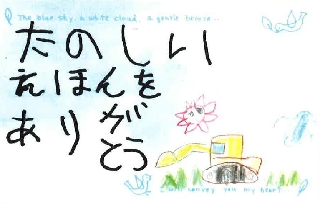 The blue sky, a white cloud, a gentle breeze...
たのしい
えほんを
ありがとう
I will convey you my heart